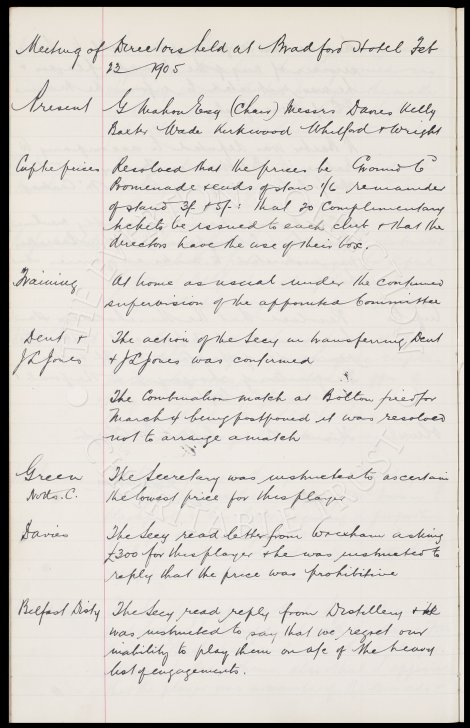 Meeting of Directors held at Bradford Hotel Feb
22 1905
Present G Mahon Esq (Chair) Messrs Davies Kelly
Baxter Wade Kirkwood Whitford & Wright
Cuptie prices Resolved that the prices be Ground 6d
Promenade & ends of stand 1/6 remainder
of stand 3/- & 5/-: that 20 Complimentary
tickets be issued to each club & that the
directors have the use of their box.
Training At home as usual under the continued
supervision of the appointed Committee
Dent & The action of the Secy in transferring Dent
J L Jones & J L Jones was confirmed
The Combination match at Bolton fixed for
March 4 being postponed it was resolved
not to arrange a match
Green The Secretary was instructed to ascertain
Notts. C. the lowest price for this player
Davies The Secy read letter from Wrexham asking
£300 for this player & he was instructed to
reply that the price was prohibitive
Belfast Disty The Secy read reply from Distillery & he
was instructed to say that we regret our
inability to play them on a/c of the heavy
list of engagements.